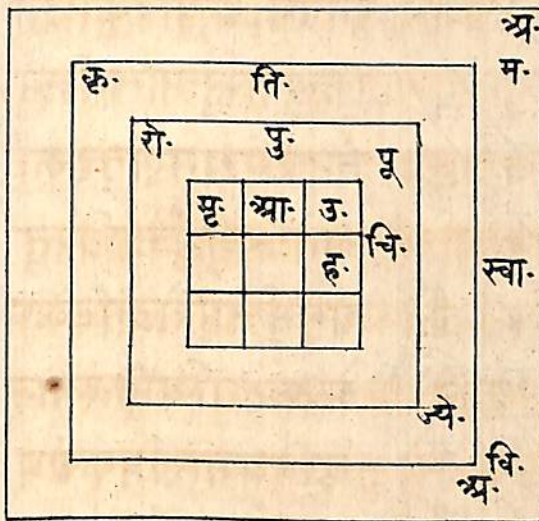 अ·
म·
कृ· ति·
रो· पु· पू
मृ· आ· उ·
ह· चि·
स्वा·
ज्ये·
वि·
अ·